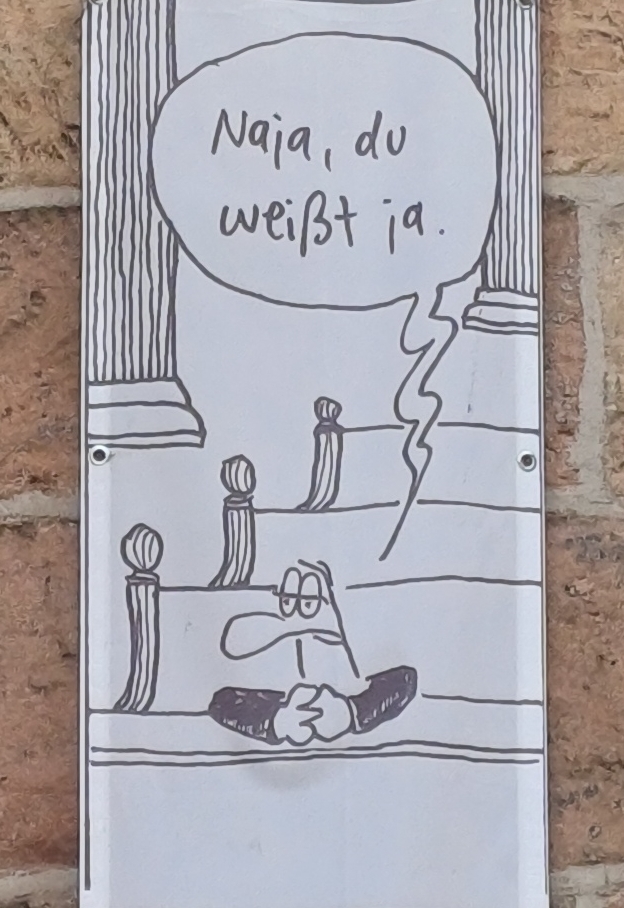 Naja, du
weißt ja.